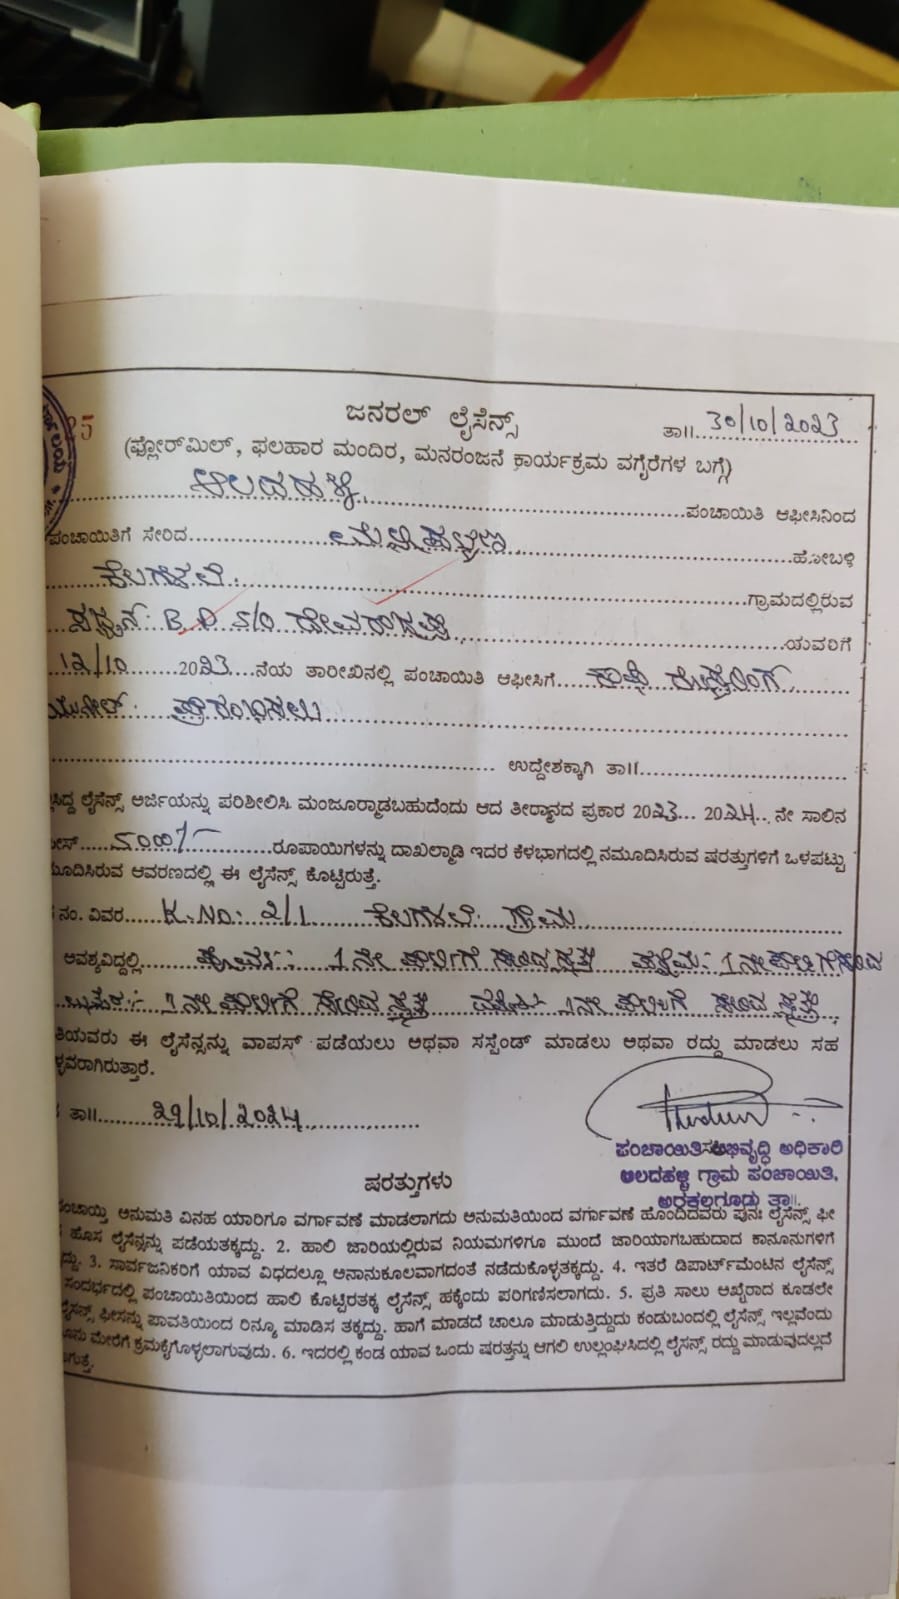 25
ಜನರಲ್ ಲೈಸೆನ್ಸ್ ತಾ॥ 30/10/2023
(ಫ್ಲೋರ್‌ಮಿಲ್, ಫಲಹಾರ ಮಂದಿರ, ಮನರಂಜನೆ ಕಾರ್ಯಕ್ರಮ ವಗೈರೆಗಳ ಬಗ್ಗೆ)
ಆಲದಹಳ್ಳಿ ಪಂಚಾಯಿತಿ ಆಫೀಸಿನಿಂದ
ಪಂಚಾಯಿತಿಗೆ ಸೇರಿದ ಹೋಬಳಿ
ಕೆಲಗಳಲೆ ಗ್ರಾಮದಲ್ಲಿರುವ
B.D S/O ಯವರಿಗೆ
12/10 2023 ನೆಯ ತಾರೀಖಿನಲ್ಲಿ ಪಂಚಾಯಿತಿ ಆಫೀಸಿಗೆ ಕಾಫಿ
ಪ್ರಾರಂಭಿಸಲು
ಉದ್ದೇಶಕ್ಕಾಗಿ ತಾ॥
ಲೈಸೆನ್ಸ್ ಅರ್ಜಿಯನ್ನು ಪರಿಶೀಲಿಸಿ ಮಂಜೂರ್‍ಮಾಡಬಹುದೆಂದು ಆದ ತೀರ್ಮಾನದ ಪ್ರಕಾರ 2023 2024 ನೇ ಸಾಲಿನ
5000/- ರೂಪಾಯಿಗಳನ್ನು ದಾಖಲ್ಮಾಡಿ ಇದರ ಕೆಳಭಾಗದಲ್ಲಿ ನಮೂದಿಸಿರುವ ಷರತ್ತುಗಳಿಗೆ ಒಳಪಟ್ಟು
ಆವರಣದಲ್ಲಿ ಈ ಲೈಸೆನ್ಸ್ ಕೊಟ್ಟಿರುತ್ತೆ.
ನಂ. ವಿವರ K.NO: 2/1 ಕೆಲಗಳಲೆ ಗ್ರಾಮ
ಅವಶ್ಯವಿದ್ದಲ್ಲಿ 1ನೇ ಪಾರ್ಟಿಗೆ ಸೇರಿದ ಸ್ವತ್ತು 1ನೇ
1ನೇ ಪಾರ್ಟಿಗೆ ಸೇರಿದ ಸ್ವತ್ತು 1ನೇ ಪಾರ್ಟಿಗೆ ಸೇರಿದ ಸ್ವತ್ತು
ಈ ಲೈಸೆನ್ಸನ್ನು ವಾಪಸ್ ಪಡೆಯಲು ಅಥವಾ ಸಸ್ಪೆಂಡ್ ಮಾಡಲು ಅಥವಾ ರದ್ದು ಮಾಡಲು ಸಹ
ತಾ॥ 29/10/2024
ಪಂಚಾಯಿತಿ ಅಭಿವೃದ್ಧಿ ಅಧಿಕಾರಿ
ಆಲದಹಳ್ಳಿ ಗ್ರಾಮ ಪಂಚಾಯಿತಿ,
ಅರಕಲಗೂಡು ತಾ॥.
ಷರತ್ತುಗಳು
ಅನುಮತಿ ವಿನಹ ಯಾರಿಗೂ ವರ್ಗಾವಣೆ ಮಾಡಲಾಗದು ಅನುಮತಿಯಿಂದ ವರ್ಗಾವಣೆ ಹೊಂದಿದವರು ಪುನಃ ಲೈಸೆನ್ಸ್ ಫೀ
ಹೊಸ ಲೈಸೆನ್ಸನ್ನು ಪಡೆಯತಕ್ಕದ್ದು. 2. ಹಾಲಿ ಜಾರಿಯಲ್ಲಿರುವ ನಿಯಮಗಳಿಗೂ ಮುಂದೆ ಜಾರಿಯಾಗಬಹುದಾದ ಕಾನೂನುಗಳಿಗೆ
3. ಸಾರ್ವಜನಿಕರಿಗೆ ಯಾವ ವಿಧದಲ್ಲೂ ಅನಾನುಕೂಲವಾಗದಂತೆ ನಡೆದುಕೊಳ್ಳತಕ್ಕದ್ದು. 4. ಇತರೆ ಡಿಪಾರ್ಟ್‌ಮೆಂಟಿನ ಲೈಸೆನ್ಸ್
ಸಂದರ್ಭದಲ್ಲಿ ಪಂಚಾಯಿತಿಯಿಂದ ಹಾಲಿ ಕೊಟ್ಟಿರತಕ್ಕ ಲೈಸೆನ್ಸ್ ಹಕ್ಕೆಂದು ಪರಿಗಣಿಸಲಾಗದು. 5. ಪ್ರತಿ ಸಾಲು ಅಖೈರಾದ ಕೂಡಲೇ
ಫೀಸನ್ನು ಪಾವತಿಯಿಂದ ರಿನ್ಯೂ ಮಾಡಿಸ ತಕ್ಕದ್ದು. ಹಾಗೆ ಮಾಡದೆ ಚಾಲೂ ಮಾಡುತ್ತಿದ್ದುದು ಕಂಡುಬಂದಲ್ಲಿ ಲೈಸೆನ್ಸ್ ಇಲ್ಲವೆಂದು
ಮೇರೆಗೆ ಕ್ರಮಕೈಗೊಳ್ಳಲಾಗುವುದು. 6. ಇದರಲ್ಲಿ ಕಂಡ ಯಾವ ಒಂದು ಷರತ್ತನ್ನು ಆಗಲಿ ಉಲ್ಲಂಘಿಸಿದಲ್ಲಿ ಲೈಸೆನ್ಸ್ ರದ್ದು ಮಾಡುವುದಲ್ಲದೆ